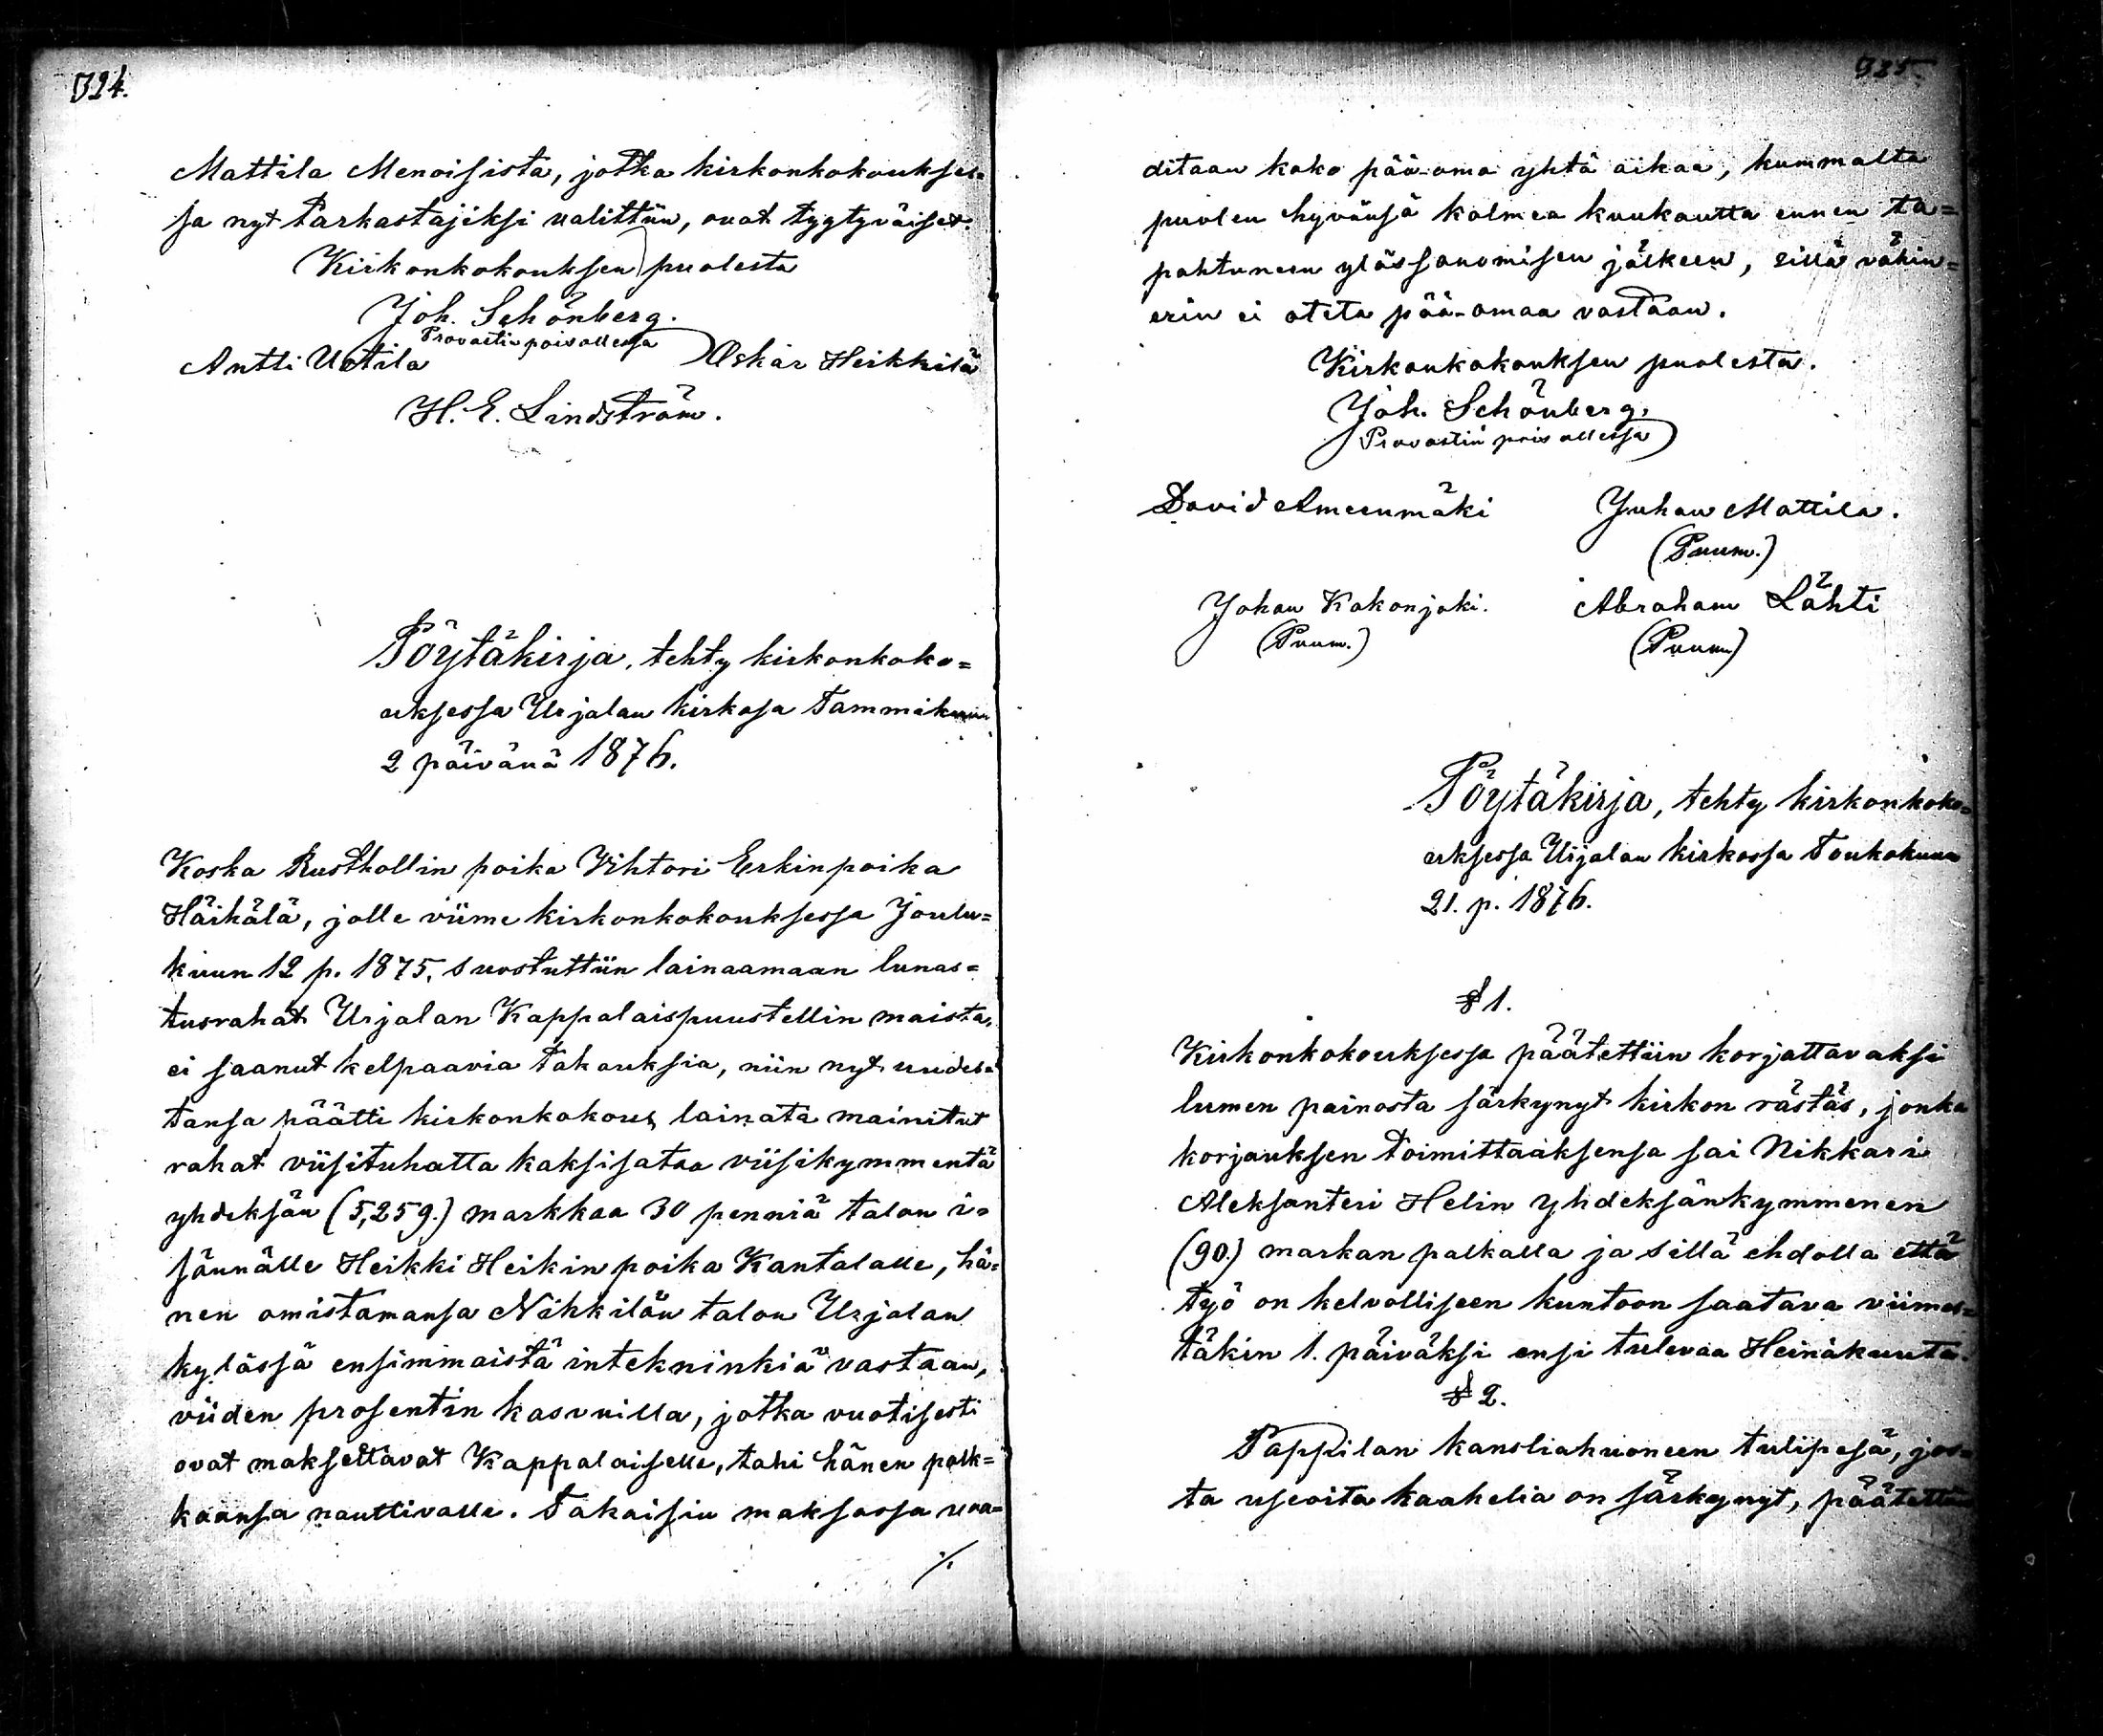 324.
Mattila Menoisista, jotka kirkonkokoukses=
sa nyt tarkastajiksi valittiin, ovat tygtyväiset.
Kirkonkokouksen puolesta
Joh. Schönberg.
Provastin poisollessa
Antti Uotila Oskar Heikkilä
H. E. Lindström.
Pöytäkirja, tehty kirkonkoko=
uksessa Urjalan kirkosa Tammikuun
2 päivänä 1876.
Koska Rusthollin poika Vihtori Erkinpoika
Häihälä, jolle viime kirkonkokouksessa Joulu=
kuun 12 p. 1875, suostuttiin lainaamaan lunas=
tusrahat Urjalan Kappalaispuustellin maista,
ei saanut kelpaavia takauksia, niin nyt uudes=
tansa päätti kirkonkokous lainata mainitut
rahat viisituhatta kaksisataa viisikymmentä
yhdeksän (5,259.) markkaa 30 penniä talon i=
sännälle Heikki Heikinpoika Kantalalle, hä=
nen omistamansa Nikkilän talon Urjalan
kylässä ensimmaistä intekninkiä vastaan,
viiden prosentin kasvuilla, jotka vuotisesti
ovat maksettavat Kappalaiselle, tahi hänen palk=
kaansa nauttivalle. Takaisin maksossa vaa=
./.
325.
ditaan koko pää-oma yhtä aikaa, kummalta
puolen hyvänsä kolmea kuukautta ennen ta=
pahtuneen ylössanomisen jälkeen, sillä vähin=
erin ei oteta pää-omaa vastaan.
Kirkonkokouksen puolesta.
Joh. Schönberg.
Provastin pois ollessa
David Ameenmäki Juhan Mattila.
(Puum.)
Johan Kokonjoki. Abraham Lähti
(Puum.) (Puum)
Pöytäkirja, tehty kirkonkoko=
uksessa Urjalan kirkossa Toukokuun
21. p. 1876.
§ 1.
Kirkonkokouksessa päätettiin korjattavaksi
lumen painosta särkynyt kirkon rästäs, jonka
korjauksen toimittaaksensa sai Nikkari
Aleksanteri Helin yhdeksänkymmenen
(90.) markan palkalla ja sillä ehdolla että
työ on kelvolliseen kuntoon saatava viimes=
täkin 1. päiväksi ensi tulevaa Heinäkuuta.
§ 2.
Pappilan kansliahuoneen tulipesä, jos=
ta useoita kaakelia on särkynyt, päätettiin